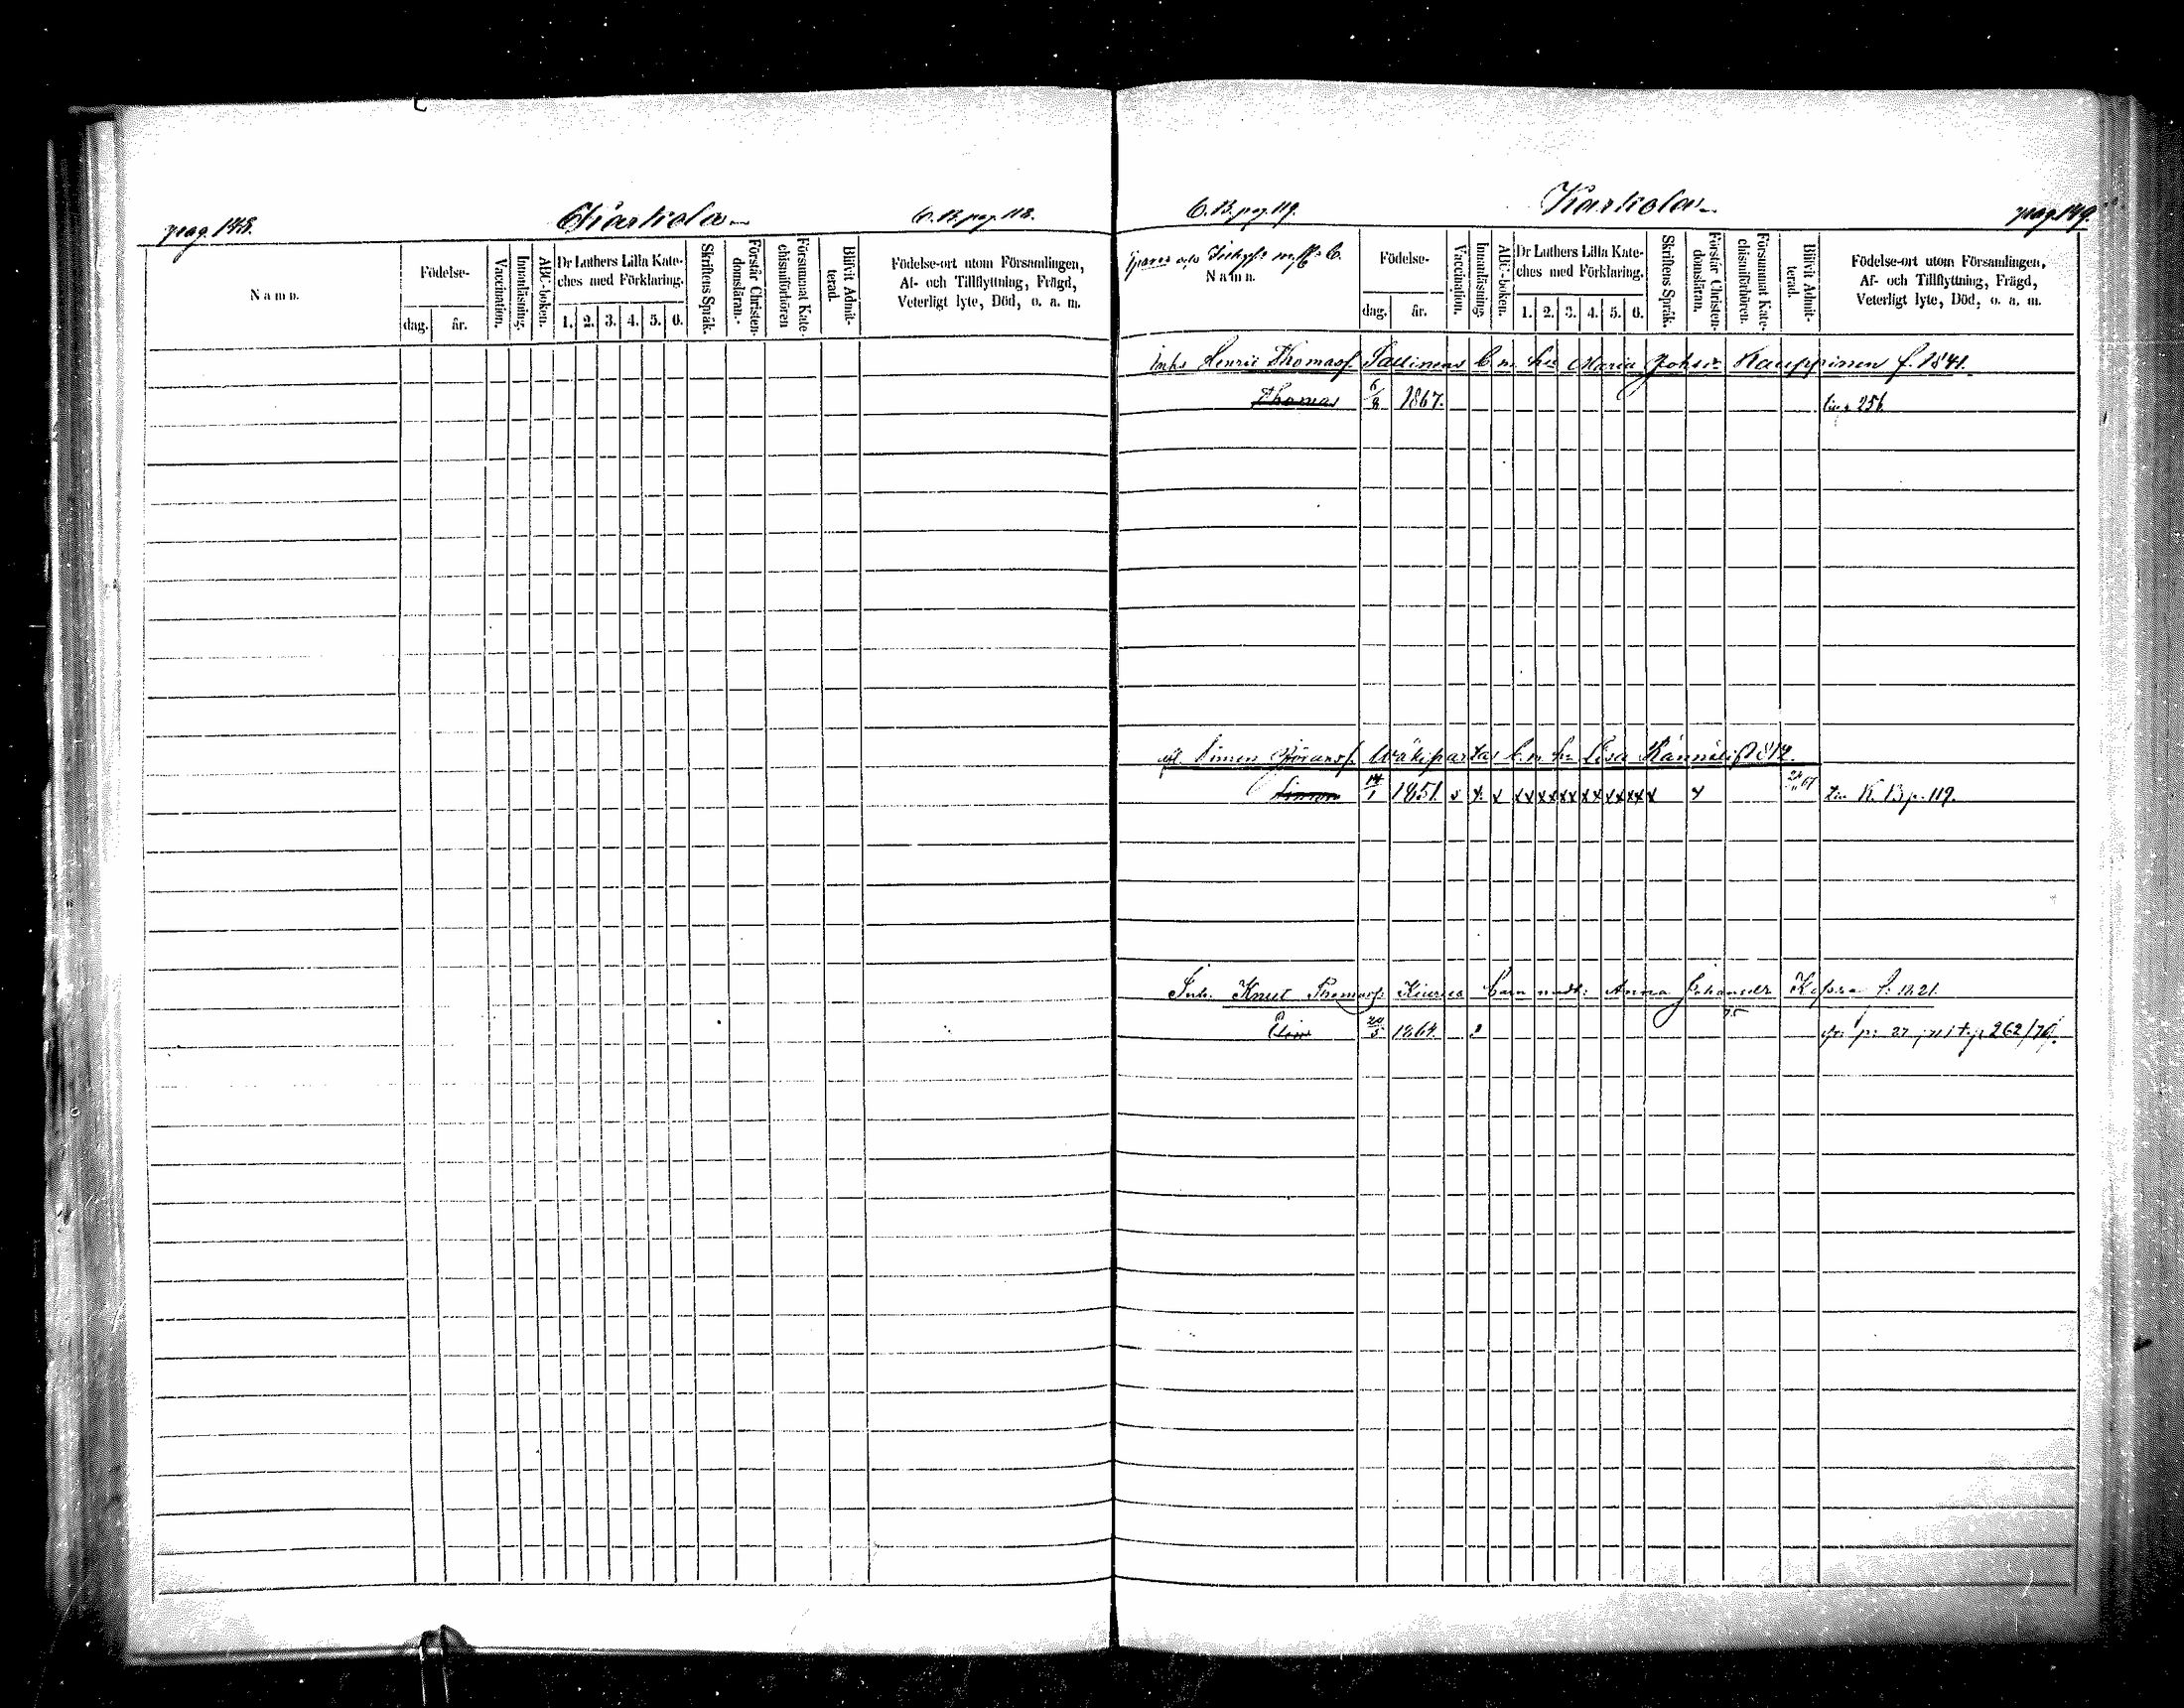 pag. 148.
Karkola
C. B. pag. 118.
Namn.
Födelse-
dag.
år.
Vaccination.
Innanläsning.
ABC-boken.
Dr Luthers Lilla Kate-
ches med Förklaring.
1. 2. 3. 4. 5. 6.
Skriftens Språk.
Förstår Christen-
domsläran.
Försummat Kate-
chismiförhören
Blifvit Admit-
terad.
Födelse-ort utom Församlingen,
Af- och Tillflyttning, Frägd,
Veterligt lyte, Död, o. a. m.
C. B. pag. 119.
Karkola
pag. 149.
Namn.
Födelse-
dag.
år.
Vaccination.
Innanläsning.
ABC-boken.
Dr Luthers Lilla Kate-
ches med Förklaring.
1. 2. 3. 4. 5. 6.
Skriftens Språk.
Förstår Christen-
domsläran.
Försummat Kate-
chismiförhören.
Blifvit Admit-
terad.
Födelse-ort utom Församlingen,
Af- och Tillflyttning, Frägd,
Veterligt lyte, Död, o. a. m.
Inhs Henric Thomasf. Tallinens b. m. hu Maria Johsdr Kauppinen f. 1841.
Thomas 6/8 1867. 256
Simon Göransf. Wäkiparkas b. m. hu Lisa
Simon 14/1 1851. x x x x x x x x x x x K. B. p. 119.
Inh. Knut Thomasf. Kiurus barn medt: Anna Johansdr f. 1821.
1864. p. 27, 262/70.